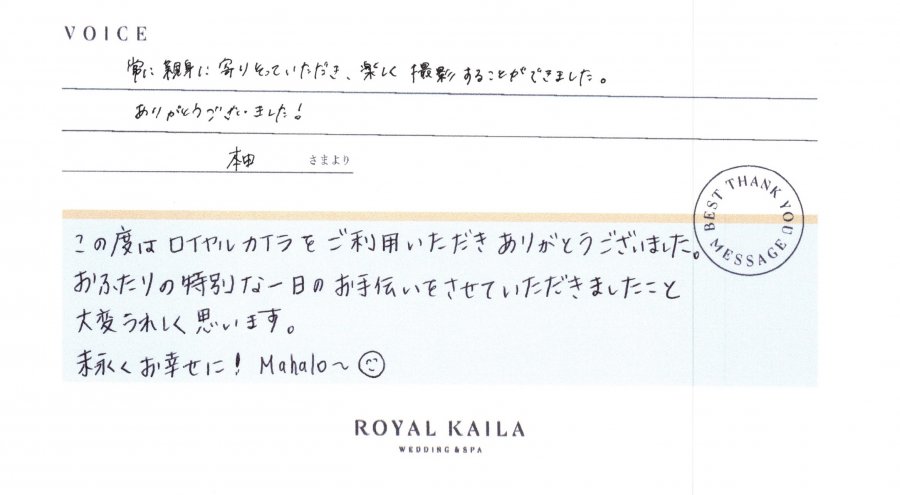 VOICE
常に親身に寄りそっていただき、楽しく撮影することができました。
ありがとうございました!
本田 さまより
BEST THANK YOU MESSAGE
この度はロイヤルカイラをご利用いただきありがとうございました。
おふたりの特別な一日のお手伝いをさせていただきましたこと
大変うれしく思います。
末永くお幸せに! Mahalo〜
ROYAL KAILA
WEDDING & SPA